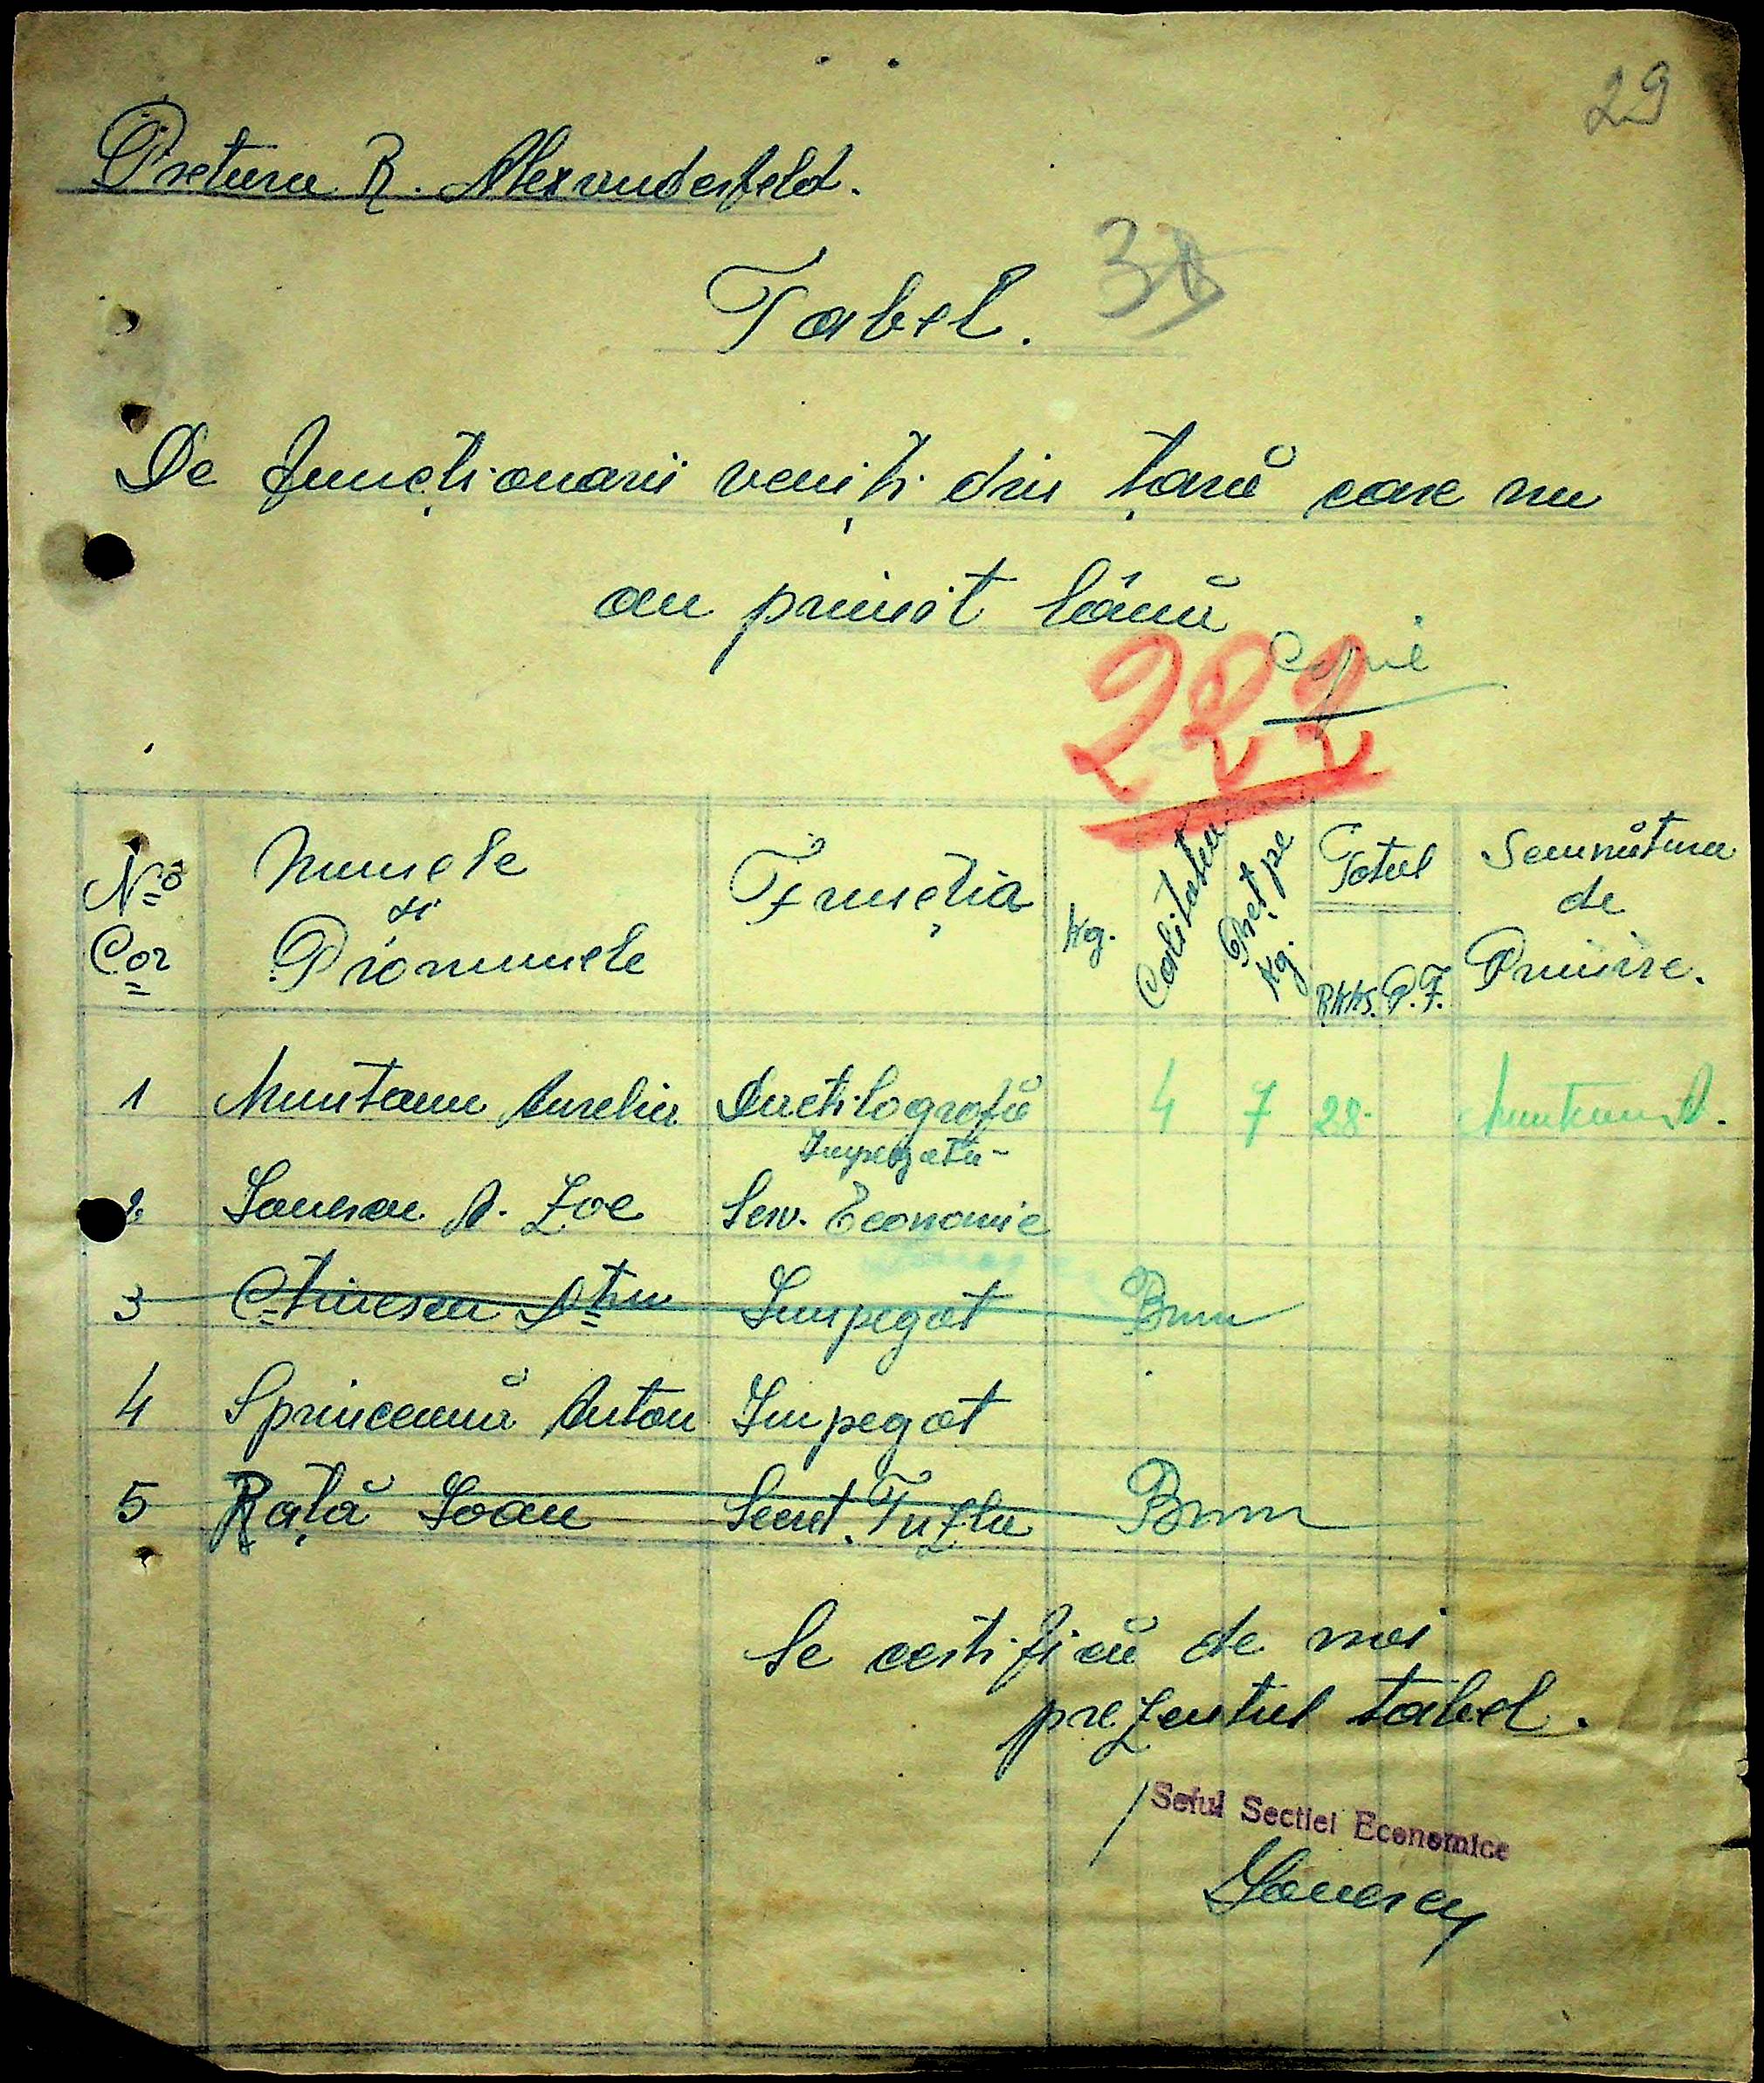 29
Pretura R. Alexanderfeld.
Tabel.
De funcționarii veniți din țară care nu
au primit lână
Copie
222
No Cor
Numele și Pronumele
Funcția
Kg.
Calitatea
Preț pe Kg.
Totul
RKKS. P.F.
Semnătura de Primire.
1 Munteanu Aurelia Dactilografă 4 7 28- Munteanu A.
Impegată-
2 Ionescu A. Zoe Serv. Economic
3 Impegat
4 Sprinceană Anton Impegat
5 Rață Ioan Secret. Tuzla
Se certifică de noi
prezentul tabel.
Seful Sectiei Economice
Ionescu